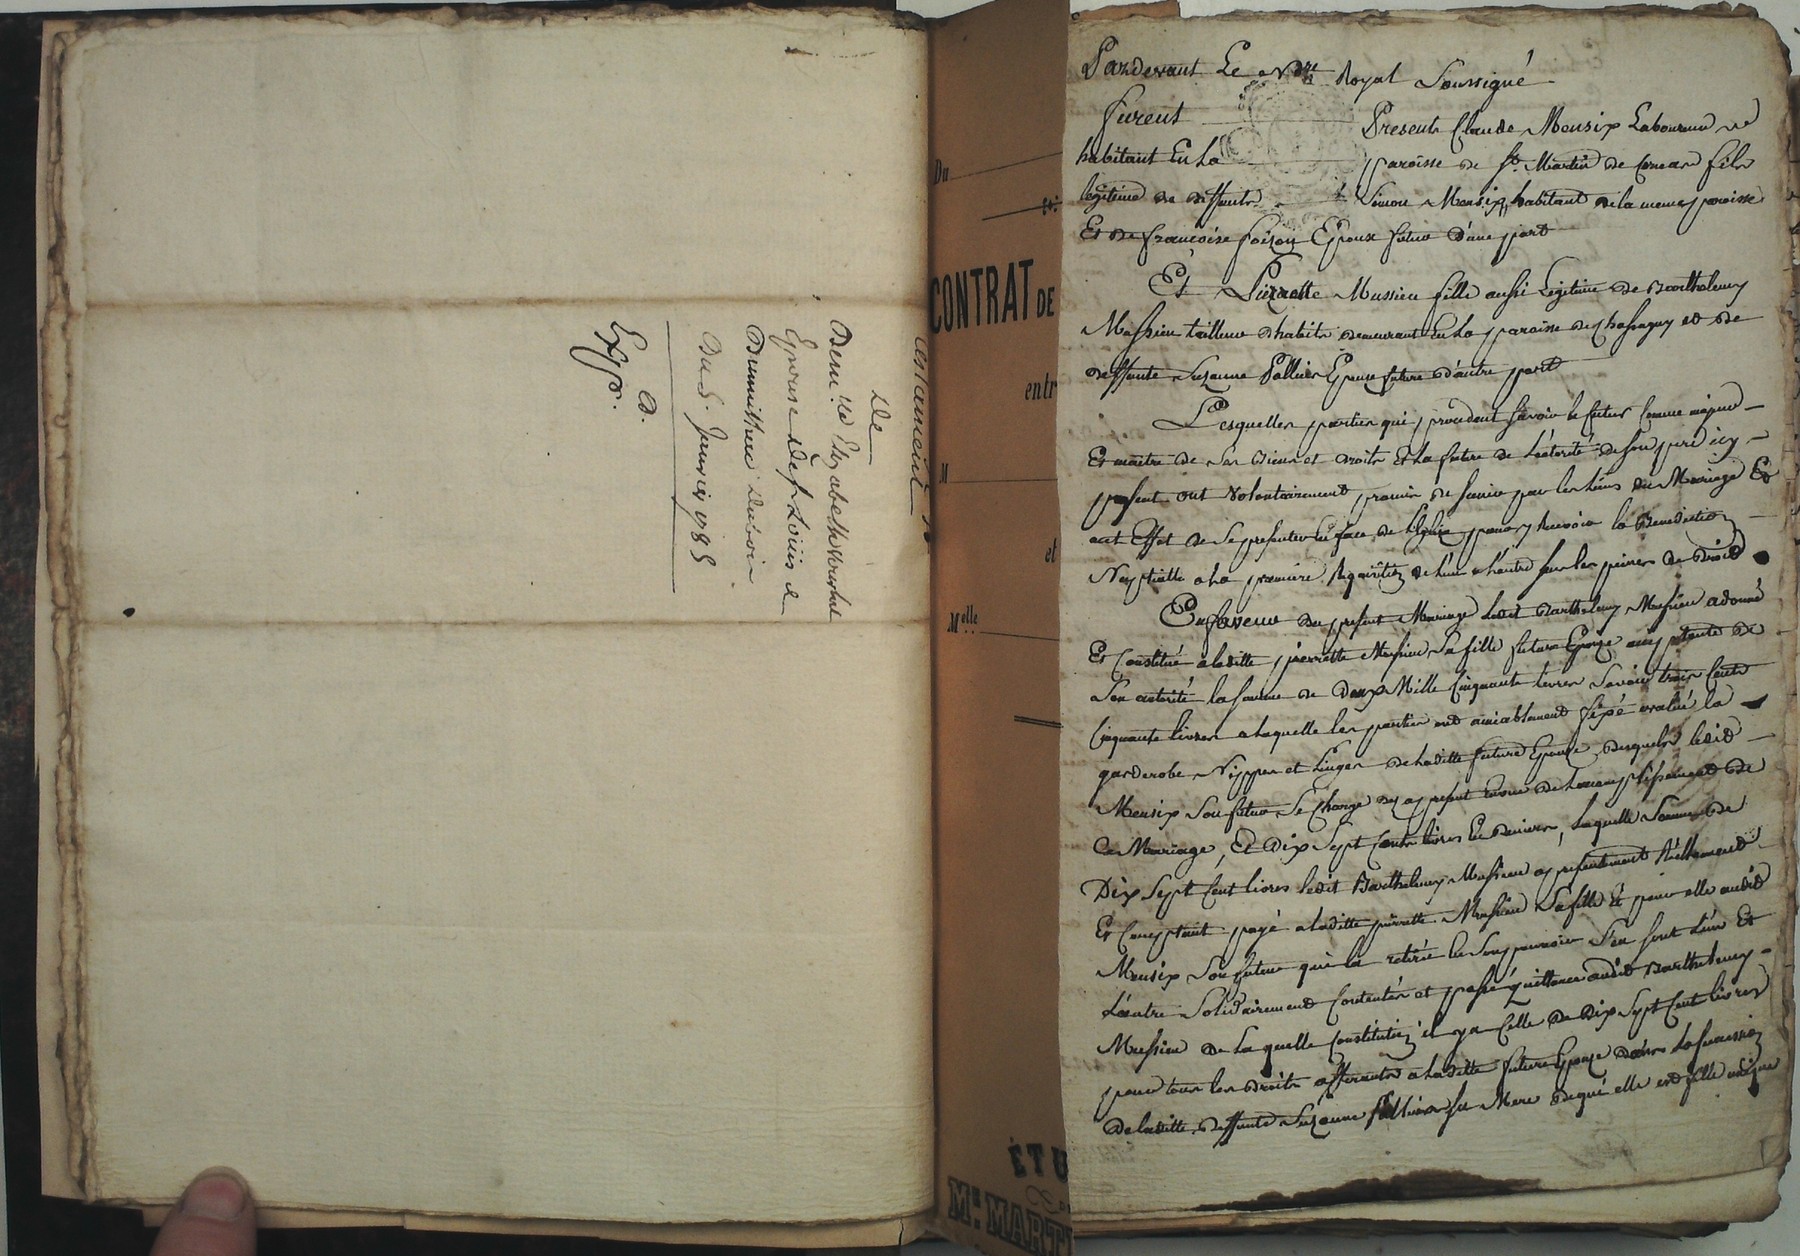 testament
De
Dem.lle Elizabeth
Epouse de Sr Louis
Du 5. Janvier 1785
Exp.
Du
CONTRAT DE
entr
M
et
Melle
ÉTU
Me MART
Pardevant Le Nore Royal Soussigné
furent Presents Claude Monsix Laboureur
habitant En La paroisse de St. Martin de Cornas fils
legitime de deffunt Simon Monsix, habitant de la meme paroisse
Et de francoise foizon Epoux futur d'une part
Et Pierrette Massieu fille aussi Legitime de Barthelemy
Massieu tailleur d'habits demeurant En La paroisse de Chassagny et de
deffunte Suzanne Pollier Epouse future d'autre part
Lesquelles parties qui procedent savoir le futur comme majeur
Et maitre de ses Biens et droits Et La future de L'autorité de son pere icy
present ont volontairement promis de s'unir par les Liens du Mariage Et
aux Effet de Se presenter En face de L'Eglise pour y Recevoir la Benediction
Nuptialle a La premiere Requisition de L'un a L'autre sur les peines de Droit
En faveur du present Mariage Ledit Barthelemy Massieu a donné
Et Constitué a Laditte pierrette Massieu Sa fille future Epouze de
Son autorité la somme de Deux Mille Cinquante livres Savoir trois Cents
Cinquante livres a laquelle les parties ont amiablement fixé evalué la
garderobe Nippes et Linges de Laditte future Epouze desquels ledit
Monsix Son futur Se Charge des a present En vue de L'accomplissement de
Ce Mariage, Et Dix Sept Cents livres En deniers, laquelle Somme de
Dix Sept Cent livres ledit Barthelemy Massieu a presentement Réellement
Et Comptant payé a Laditte pierrette Massieu Sa fille Et pour elle audit
Monsix Son futur qui la retirée En Son pouvoir S'en sont L'un Et
L'autre Solidairement Contentés et passé quittance audit Barthelemy
Massieu de La quelle Constitution il y a Celle de Dix Sept Cent livres
pour tous les Droits afferents a Laditte future Epouze dans La succession
de laditte deffunte Suzanne Pollier Sa Mere de qui elle est fille unique